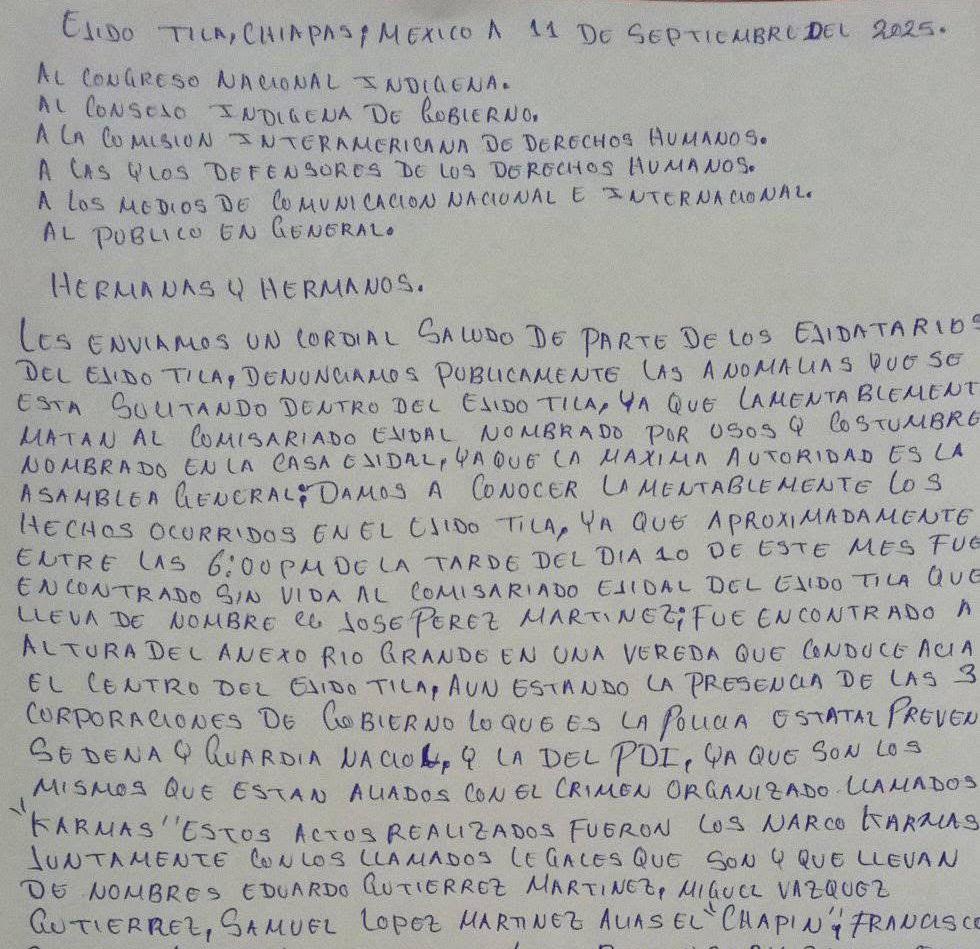 EJIDO TILA, CHIAPAS, MEXICO A 11 DE SEPTIEMBRE DEL 2025.
AL CONGRESO NACIONAL INDIGENA.
AL CONSEJO INDIGENA DE GOBIERNO.
A LA COMISION INTERAMERICANA DE DERECHOS HUMANOS.
A LAS Y LOS DEFENSORES DE LOS DERECHOS HUMANOS.
A LOS MEDIOS DE COMUNICACION NACIONAL E INTERNACIONAL.
AL PUBLICO EN GENERAL.
HERMANAS Y HERMANOS.
LES ENVIAMOS UN CORDIAL SALUDO DE PARTE DE LOS EJIDATARIOS
DEL EJIDO TILA, DENUNCIAMOS PUBLICAMENTE LAS ANOMALIAS QUE SE
ESTA SUCITANDO DENTRO DEL EJIDO TILA, YA QUE LAMENTABLEMENT
MATAN AL COMISARIADO EJIDAL NOMBRADO POR USOS Y COSTUMBRE
NOMBRADO EN LA CASA EJIDAL, YA QUE LA MAXIMA AUTORIDAD ES LA
ASAMBLEA GENERAL; DAMOS A CONOCER LAMENTABLEMENTE LOS
HECHOS OCURRIDOS EN EL EJIDO TILA, YA QUE APROXIMADAMENTE
ENTRE LAS 6:00 PM DE LA TARDE DEL DIA 10 DE ESTE MES FUE
ENCONTRADO SIN VIDA AL COMISARIADO EJIDAL DEL EJIDO TILA QUE
LLEVA DE NOMBRE JOSE PEREZ MARTINEZ; FUE ENCONTRADO A
ALTURA DEL ANEXO RIO GRANDE EN UNA VEREDA QUE CONDUCE ACIA
EL CENTRO DEL EJIDO TILA, AUN ESTANDO LA PRESENCIA DE LAS 3
CORPORACIONES DE GOBIERNO LO QUE ES LA POLICIA ESTATAL PREVEN
SEDENA Y GUARDIA NACIOL, Y LA DEL PDI, YA QUE SON LOS
MISMOS QUE ESTAN ALIADOS CON EL CRIMEN ORGANIZADO LLAMADOS
"KARMAS" ESTOS ACTOS REALIZADOS FUERON LOS NARCO KARMAS
JUNTAMENTE CON LOS LLAMADOS LEGALES QUE SON Y QUE LLEVAN
DE NOMBRES EDUARDO GUTIERREZ MARTINEZ, MIGUEL VAZQUEZ
GUTIERREZ, SAMUEL LOPEZ MARTINEZ ALIAS EL "CHAPIN", FRANCISC